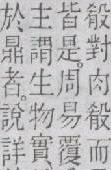 殽對肉殽而
皆是周易覆
主謂生物實
於鼎者。說詳